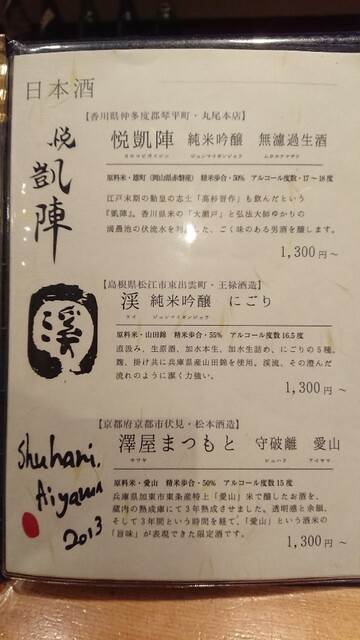 日本酒
【香川県仲多度郡琴平町・丸尾本店】
悦 凱陣
悦凱陣 純米吟醸 無濾過生酒
ヨロコビガイジン ジュンマイギンジョウ ムロカナマザケ
原料米・雄町(岡山県赤磐産) 精米歩合・50% アルコール度数・17～18度
江戸末期の勤皇の志士「高杉晋作」も飲んだという
『凱陣』。香川県米の「大瀬戸」と弘法大師ゆかりの
満濃池の伏流水を利用した、ごく味のある男酒を醸します。
1,300円～
【島根県松江市東出雲町・王禄酒造】
渓
渓 純米吟醸 にごり
ケイ ジュンマイギンジョウ
原料米・山田錦 精米歩合・55% アルコール度数16.5度
直汲み、生原酒、加水本生、加水生詰め、にごりの5種。
麹、掛け共に兵庫県産山田錦を使用。渓流、その澄んだ
流れのように潔く力強い。
1,300円～
【京都府京都市伏見・松本酒造】
Shuhari.
Aiyama
2013
澤屋まつもと 守破離 愛山
サワヤ シュハリ アイヤマ
原料米・愛山 精米歩合・50% アルコール度数15度
兵庫県加東市東条産特上「愛山」米で醸したお酒を、
蔵内の熟成庫にて3年熟成させました。透明感と余韻、
そして3年間という時間を経て、「愛山」という酒米の
「旨味」が表現できた限定酒です。
1,300円～